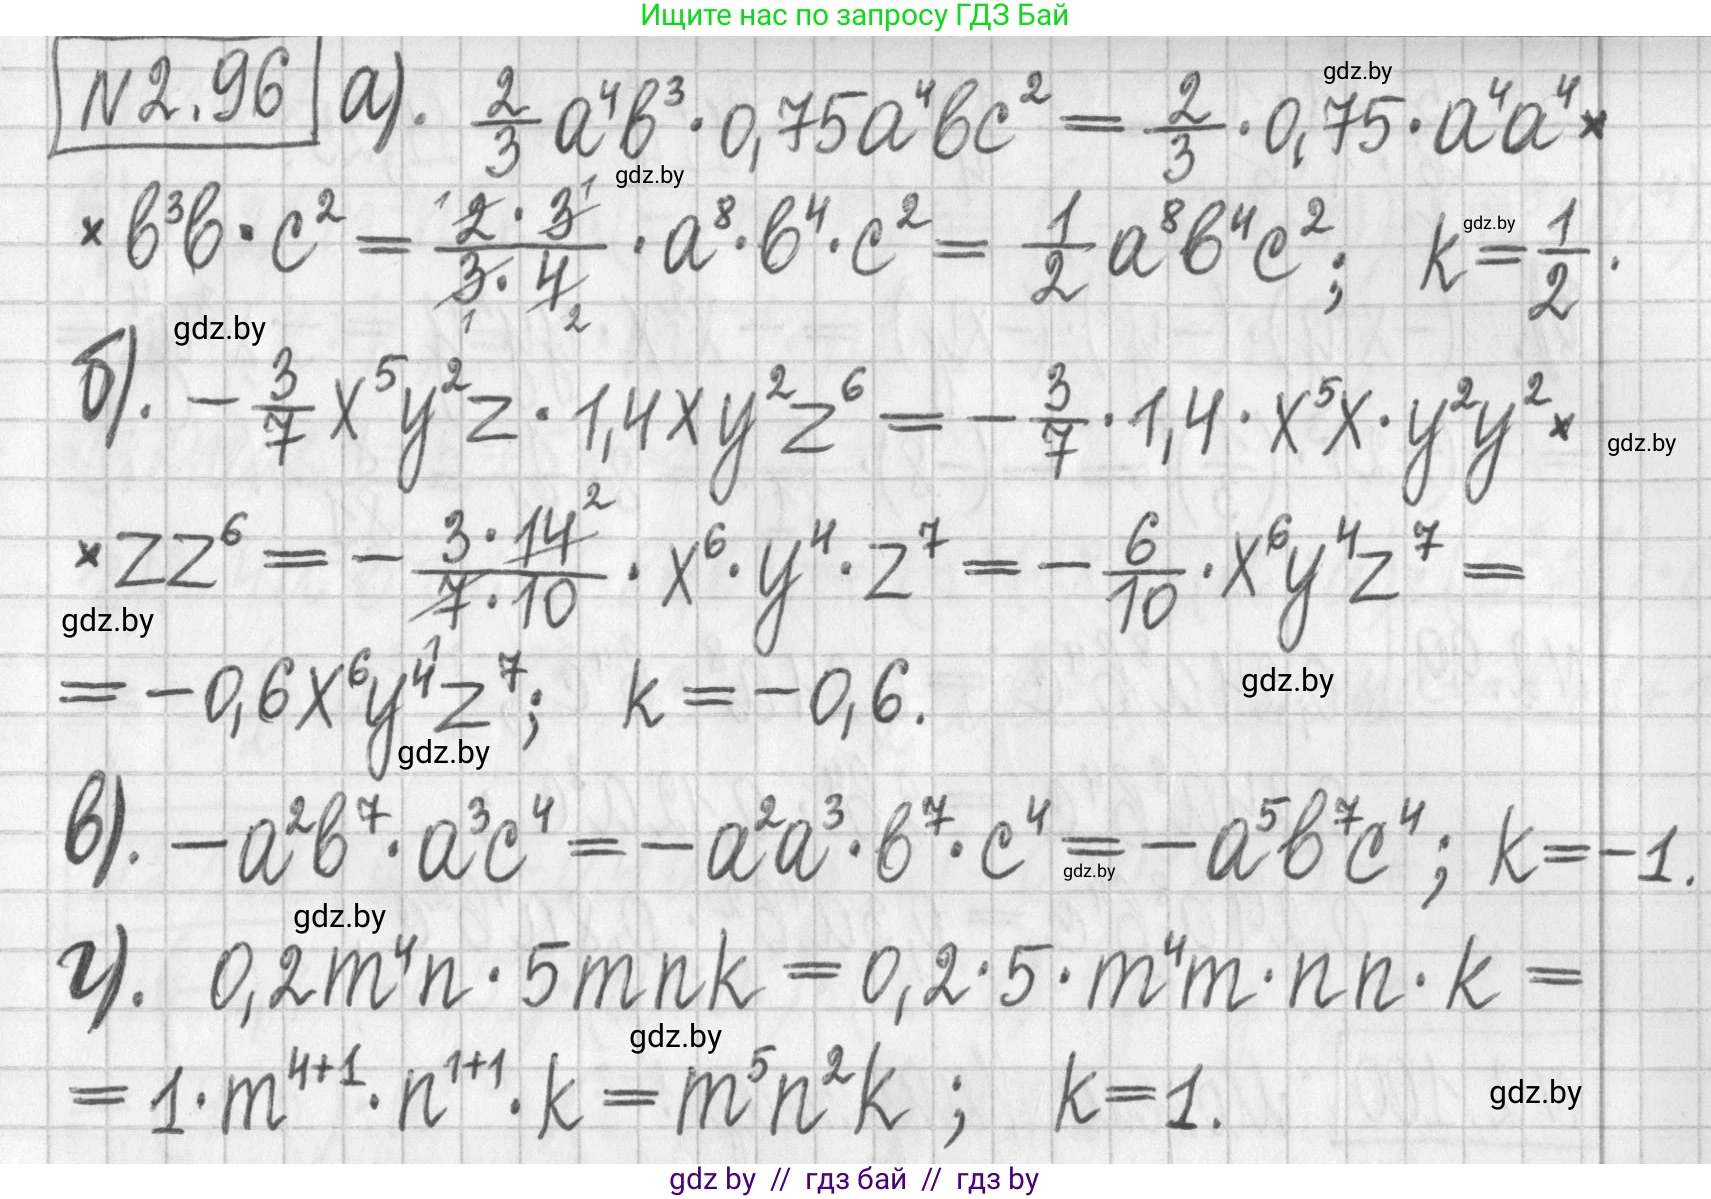 Ищите нас по запросу ГДЗ Бай
N2.96 а). 2/3 a⁴b³ · 0,75a⁴bc² = 2/3 · 0,75 · a⁴a⁴ ×
gdz.by
gdz.by
× b³b · c² = (2 · 3)/(3 · 4) · a⁸ · b⁴ · c² = 1/2 a⁸b⁴c²; k = 1/2.
1 1 1 2
gdz.by
gdz.by
б). − 3/7 x⁵y²z · 1,4xy²z⁶ = − 3/7 · 1,4 · x⁵x · y²y² ×
gdz.by
× zz⁶ = − (3 · 14)/(7 · 10) · x⁶ · y⁴ · z⁷ = − 6/10 · x⁶y⁴z⁷ =
2 1
gdz.by
= −0,6x⁶y⁴z⁷; k = −0,6.
gdz.by
gdz.by
в). −a²b⁷ · a³c⁴ = −a²a³ · b⁷ · c⁴ = −a⁵b⁷c⁴; k = −1.
gdz.by
gdz.by
г). 0,2m⁴n · 5mnk = 0,2 · 5 · m⁴m · nn · k =
gdz.by
= 1 · m⁴⁺¹ · n¹⁺¹ · k = m⁵n²k; k = 1.
gdz.by
gdz by // гдз бай // гдз by